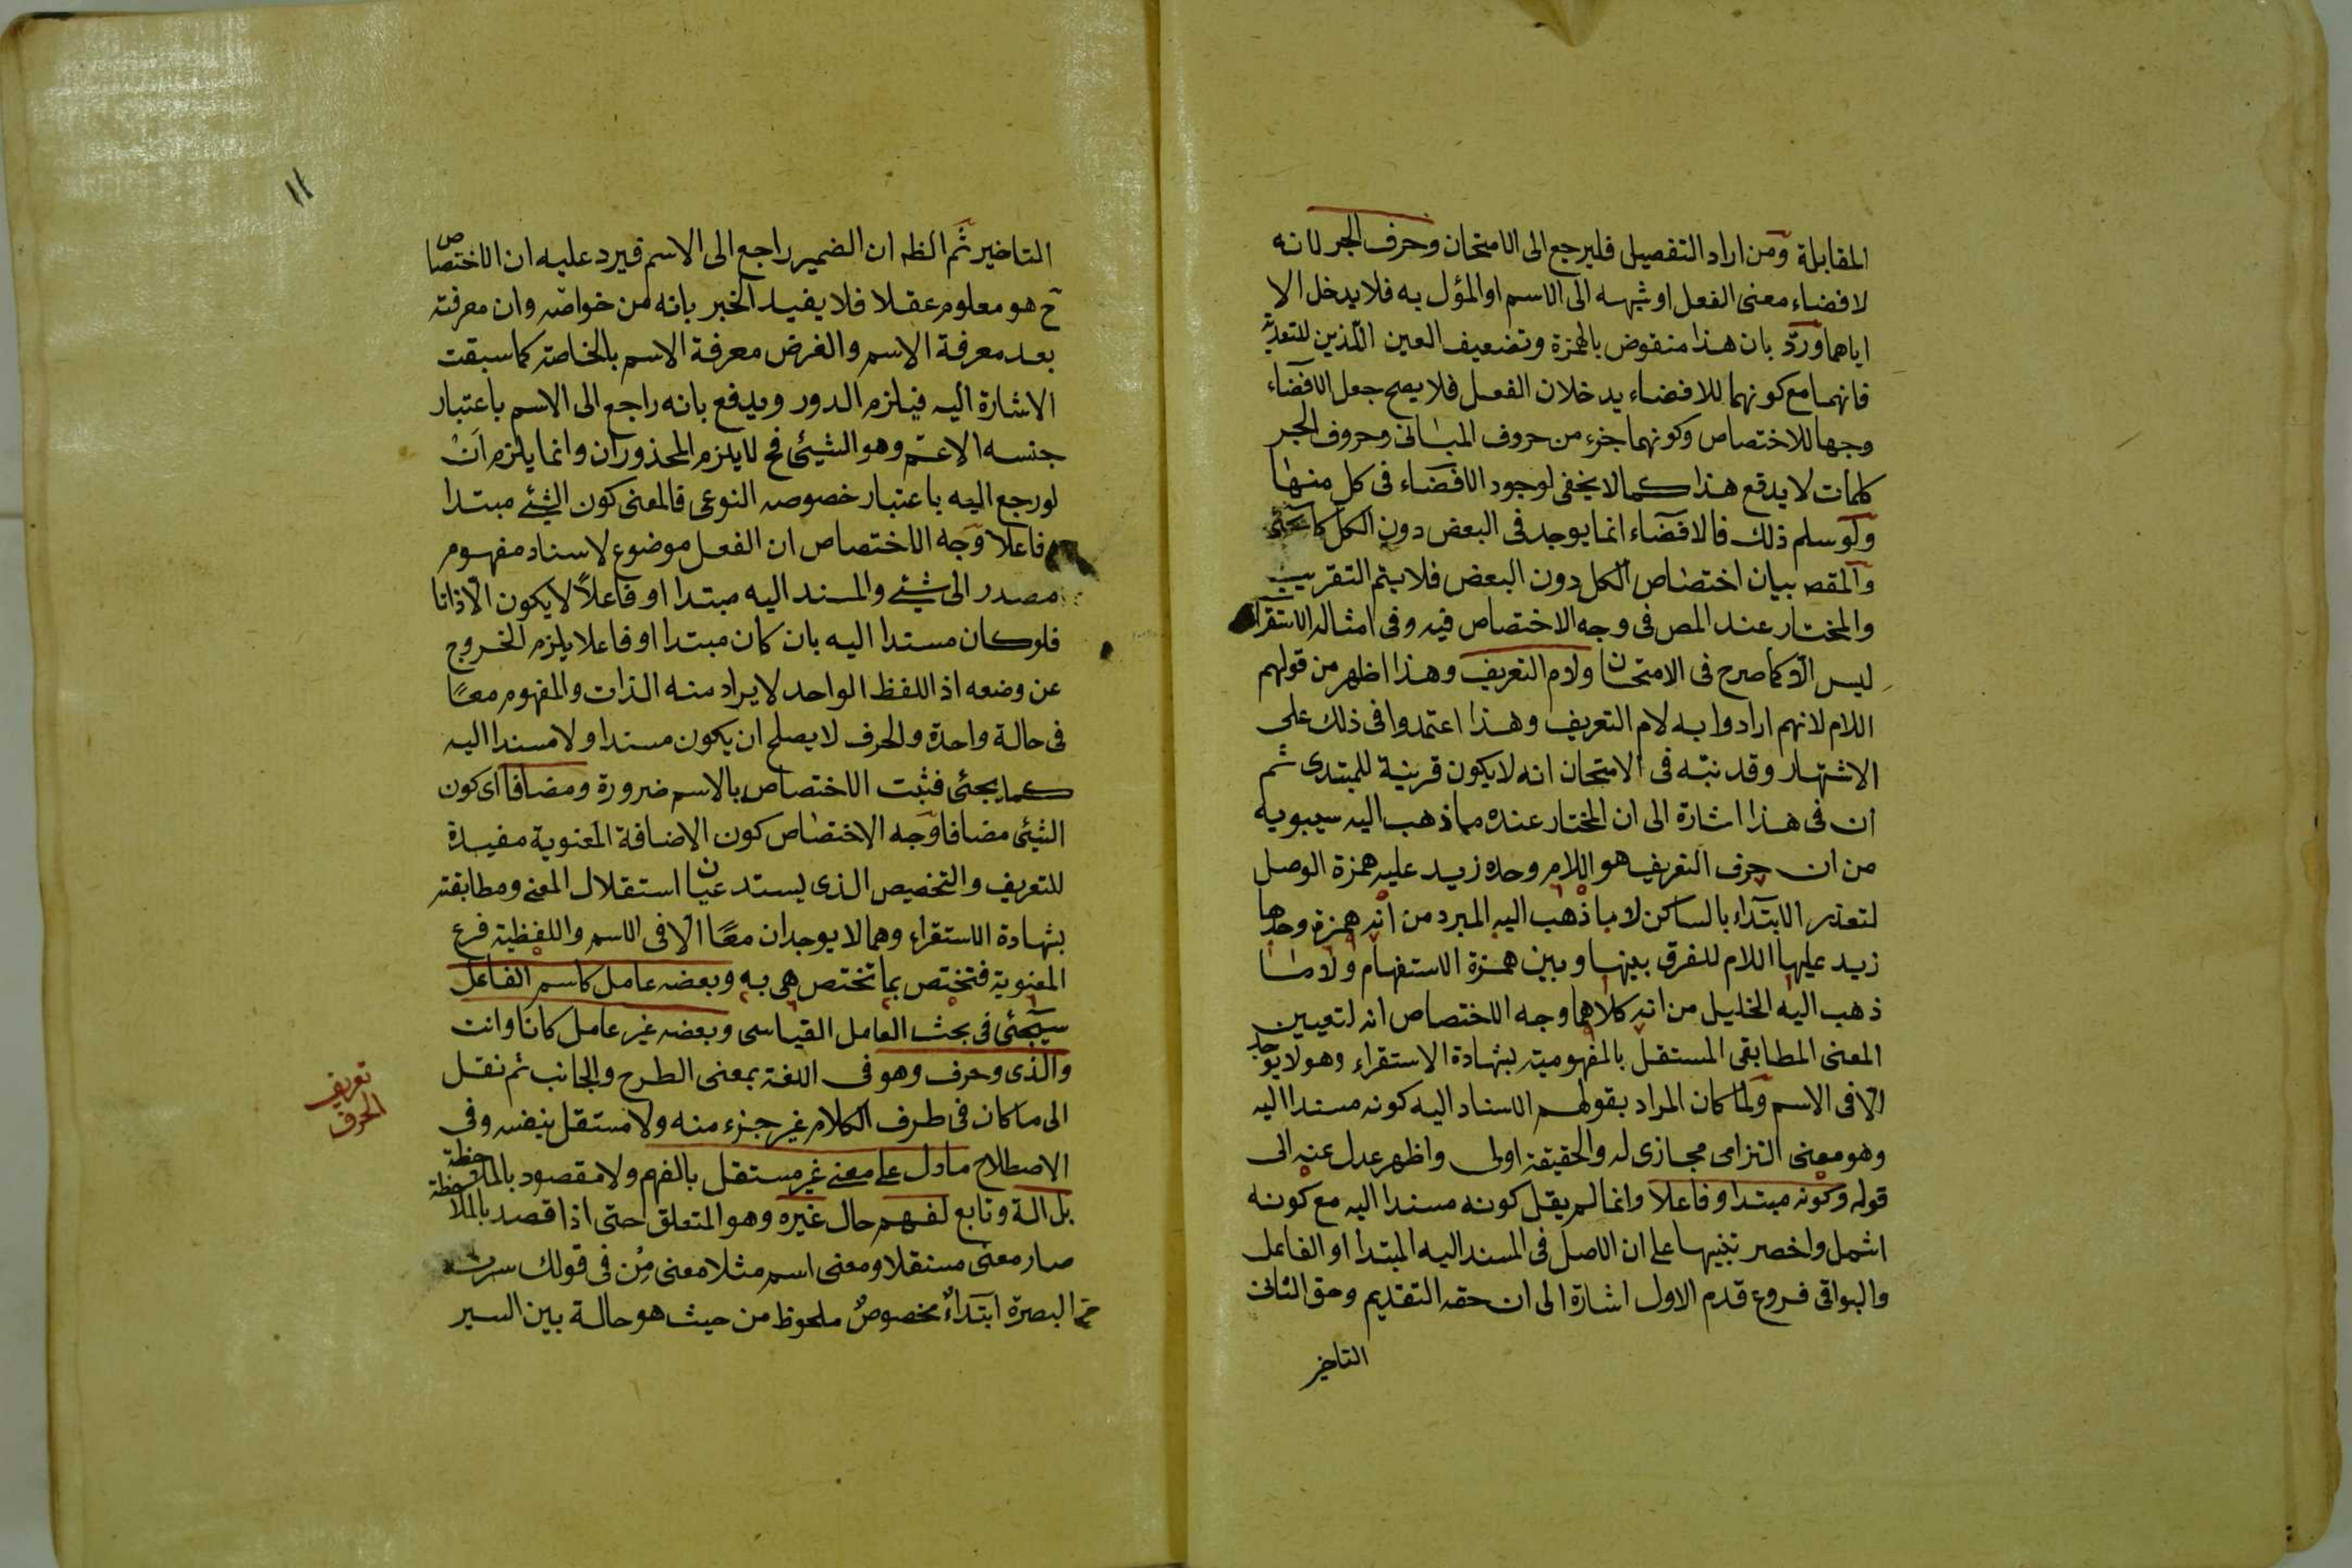 المقابلة ومن اراد التفصيل فليرجع الى الامتحان وحرف الجر لانه
لافضاء معنى الفعل او شبهه الى الاسم او المؤل به فلا يدخل الا
اياهما ورد بان هذا منقوض بالهمزة وتضعيف العين اللذين للتعدية
فانهما مع كونهما للافضاء يدخلان الفعل فلا يصح جعل الافضاء
وجها للاختصاص وكونهما جزء من حروف المبانى وحروف الجر
كلمات لا يدفع هذا كما لا يخفى لوجود الافضاء فى كل منها
ولو سلم ذلك فالافضاء انما يوجد فى البعض دون الكل كما سيجئ
والمقصـ بيان اختصاص الكل دون البعض فلا يتم التقريب
والمختار عند المص فى وجه الاختصاص فيه وفى امثاله الاستقراء
ليس الا كما صرح فى الامتحان ولام التعريف وهذا اظهر من قولهم
اللام لانهم ارادوا به لام التعريف وهذا اعتمدوا فى ذلك على
الاشتهار وقد نبّه فى الامتحان انه لا يكون قرينة للمبتدى ثم
ان فى هذا اشارة الى ان المختار عنده ما ذهب اليه سيبويه
من ان حرف التعريف هو اللام وحده زيد عليه همزة الوصل
لتعذر الابتداء بالساكن لا ما ذهب اليه المبرد من انه همزة وحدها
زيد عليها اللام للفرق بينها وبين همزة الاستفهام ولا ما
ذهب اليه الخليل من انه كلاهما وجه الاختصاص انه لتعيين
المعنى المطابقى المستقل بالمفهومية بشهادة الاستقراء وهو لا يوجد
الا فى الاسم ولما كان المراد بقولهم الاسناد اليه كونه مسندا اليه
وهو معنى التزامى مجازى له والحقيقة اولى واظهر عدل عنه الى
قوله وكونه مبتدا وفاعلا وانما لم يقل كونه مسندا اليه مع كونه
اشمل واخصر تنبيها على ان الاصل فى المسند اليه المبتدأ او الفاعل
والبواقى فروع قدم الاول اشارة الى ان حقه التقديم وحق الثانى
التاخير
١١
التاخير ثم الظـ ان الضمير راجع الى الاسم فيرد عليه ان الاختصاص
ح هو معلوم عقلا فلا يفيد الخبر بانه من خواصّه وان معرفته
بعد معرفة الاسم والغرض معرفة الاسم بالخاصة كما سبقت
الاشارة اليه فيلزم الدور ويدفع بانه راجع الى الاسم باعتبار
جنسه الاعمّ وهو الشيئ فح لا يلزم المحذوران وانما يلزم ان
لو رجع اليه باعتبار خصوصه النوعى فالمعنى كون الشيئ مبتدا
وفاعلا وجه الاختصاص ان الفعل موضوع لاسناد مفهوم
مصدر الى شيئ والمسند اليه مبتدا او فاعلاً لا يكون الا ذاتا
فلو كان مسندا اليه بان كان مبتدا او فاعلا يلزم الخروج
عن وضعه اذ اللفظ الواحد لا يراد منه الذات والمفهوم معًا
فى حالة واحدة والحرف لا يصلح ان يكون مسندا ولا مسندا اليه
كما يجئى فثبت الاختصاص بالاسم ضرورة ومضافا اى كون
الشيئ مضافا وجه الاختصاص كون الاضافة المعنوية مفيدة
للتعريف والتخصيص الذى يستدعيان استقلال المعنى ومطابقته
بشهادة الاستقراء وهما لا يوجدان معًا الا فى الاسم واللفظية فرع
المعنوية فتختص بما تختص هى به وبعضه عامل كاسم الفاعل
سيجئى فى بحث العامل القياسى وبعضه غير عامل كانا وانت
والذى وحرف وهو فى اللغة بمعنى الطرح والجانب ثم نقل
الى ما كان فى طرف الكلام غير جزء منه ولا مستقل بنفسه وفى
الاصطلاح ما دل على معنى غير مستقل بالفهم ولا مقصود بالملاحظة
بل الة وتابع لفهم حال غيره وهو المتعلق حتى اذا قصد بالملاحظة
صار معنى مستقلا ومعنى اسم مثلا معنى مِن فى قولك سرت
من البصرة ابتداءٌ مخصوصٌ ملحوظ من حيث هو حالة بين السير
تعريف
الحرف